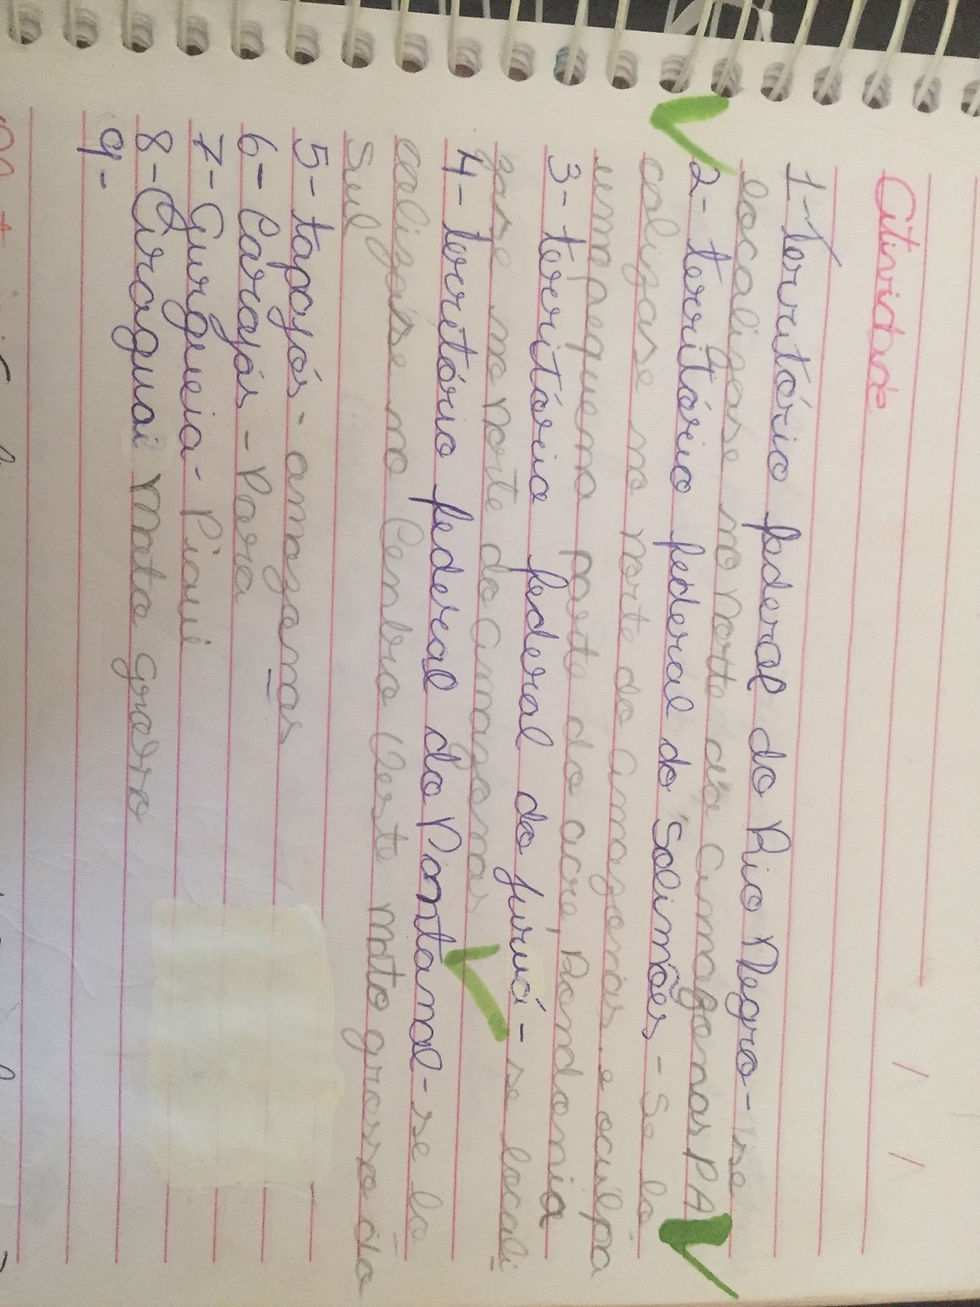 Atividade
1- Território federal do Rio Negro - se
localizase no norte do Amazonas PA
2- território federal do Solimões - Se lo
calizase no norte do Amazonas e oculpa
uma pequena parte do acre, Rondonia
3- território federal do juruá - se locali
zase no norte do Amazonas
4- território federal do Pantanal - se lo
calizase no Centro Oeste mato grosso do
Sul
5- tapajós - amazonas
6- Carajás - Pará
7- Gurgueia - Piauí
8- Araguai Mato grosso
9-